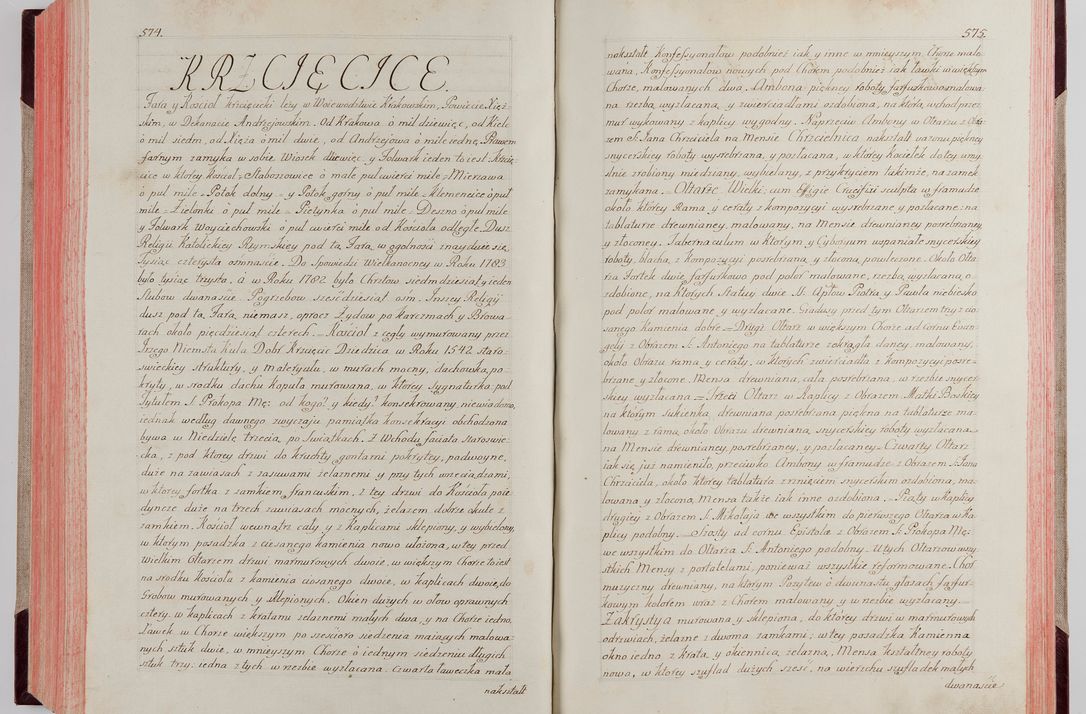 574.
KRZCIĘCICE.
Fara y Kościoł krzcięcicki leży w Woiewodztwie Krakowskim, Powiecie Xięż-
skim, w Dekanacie Andrzejowskim. Od Krakowa ò mil dziewięc, od Kielc
ò mil siedm, od Xięża ò mil dwie, od Andrzejowa ò milę iednę. Prawem
farnym zamyka w sobie Wiosek dziewięc, y Folwark ieden to iest: Krzcię-
cice w ktorey Kościoł = Słaboszowice ò małe puł cwierci mile = Mierzawa
ò puł mile = Potok dolny = y Potok gorny ò puł mile = Klemencice ò puł
mile = Zielonki ò puł mile = Pietynka ò puł mile = Deszno ò puł mile
y Folwark Woyciechowski ò puł cwierci mile od Kościoła odległe. Dusz
Religii Katolickiey Rzymskiey pod tą Farą w ogolnosii znayduie się
Tysiąc czterysta osmnascie. Do Spowiedzi Wielkanocney w Roku 1783
było tysiąc trzysta, à w Roku 1782 było Chrztow siedmdziesiąt y ieden
Slubow dwanaście. Pogrzebow sześćdziesiąt osm. Inszey Religij
dusz pod tą Farą niemasz, oprocz Żydow po karczmach y Browa-
rach około pięcdziesiąt czterech. = Kościoł z cegły wymurowany przez
Jrzego Niemsta Kula Dobr Krzcięcic Dziedzica w Roku 1542 staro-
swieckiey struktury, y materyału, w murach mocny, dachowką po-
kryty, w srodku dachu kopuła murowana, w ktorey sygnaturka: pod
tytułem S. Prokopa Mę: od kogo? y kiedy? konsekrowany, niewiadomo,
iednak według dawnego zwyczaju pamiątka konsekracyi obchodzona
bywa w Niedzielę trzecią po Swiątkach. Z Wchodu faciata staroswie-
cka, z pod ktorey drzwi do kruchty gontami pokrytey, podwoyne,
duże na zawiasach z zasuwami żelaznemi y przy tych wrzeciądzami,
w ktorey fortka z zamkiem francuskim, z tey drzwi do Kościoła poie-
dyncze duże na trzech zawiasach mocnych, żelazem dobrze okute z
zamkiem. Kościoł wewnątrz cały y z Kaplicami sklepiony, y wybielony,
w ktorym posadzka z ciesanego kamienia nowo ułożona, w tey przed
Wielkim Ołtarzem drzwi marmurowych dwoie, w większym Chorze to iest
na srodku Kościoła z kamienia ciosanego dwoie, w Kaplicach dwoie, do
Grobow murowanych y sklepionych. Okien dużych w ołow oprawnych
cztery, w kaplicach z kratami żelaznemi małych dwa, y na Chorze iedno.
Ławek w Chorze większym po sześcioro siedzenia maiących malowa-
nych sztuk dwie, w mnieyszym Chorze ò iednym siedzeniu długich
sztuk trzy: iedna z tych w rzezbie wyzłacana. Czwarta ławeczka mała
nakształt
575.
nakształt Konfessyonałow podobnież iak y inne w mnieyszym Chorze malo-
wana, Konfessyonałow nowych pod Chorem podobnież iak ławki w większym
Chorze, malowanych dwa. Ambona piękney roboty farfurkowo malowa-
na rzezbą wyzłacaną, y zwierciadłami ozdobiona, na ktorą wchod przez
mur wykowany z kaplicy wygodny. Naprzeciw Ambony w Ołtarzu z Obra-
zem S. Jana Chrzciciela na Mensie Chrzcielnica nakształt wazonu piękney
snycerskiey roboty wysrebrzana, y pozłacana, w ktorey Kociełek do tey umy-
slnie zrobiony miedziany, wybielany, z przykryciem takimże, na zamek
zamykana. = Ołtarze Wielki: cum Effigie Crucifixi sculpta w framudze
około ktorey Rama y ceraty z kompozycyi wysrebrzane y pozłacane: na
tablaturze drewnianey, malowany, na Mensie drewnianey posrebrzaney
y złoconey. Tabernaculum w ktorym y Cyborium wspaniałe snycerskiey
roboty, blachą z kompozycyi posrebrzaną, y złoconą powleczone. Około Ołta-
rza Fortek dwie, farfurkowo pod polor malowane, rzezbą wyzłacaną o-
zdobione, na ktorych Statuy dwie SS. Aptow Piotra y Pawła niebiesko
pod polor malowane y wyzłacane. Gradusy przed tym Ołtarzem trzy z cio-
sanego kamienia dobre = Drugi Ołtarz w większym Chorze ad Cornu Evan-
gelij z Obrazem S. Antoniego na tablaturze zokrągla daney, malowany,
około Obrazu rama y ceraty, w ktorych zwierciadła z kompozycyi posre-
brzane y złocone. Mensa drewniana, cała posrebrzana, w rzezbie snycer-
skiey wyzłacana = Trzeci Ołtarz w Kaplicy z Obrazem Matki Boskiey
na ktorym sukienka drewniana posrebrzana piękna na tablaturze ma-
lowany z ramą około Obrazu drewnianą, snycerskiey roboty wyzłacaną =
na Mensie drewnianey, posrebrzaney, y pozłacaney = Czwarty Ołtarz
iak się już namieniło, przeciwko Ambony w framudze z Obrazem S. Jana
Chrzciciela, około ktorey tablatura z rznięciem snycerskim ozdobiona, ma-
lowana y złocona, Mensa także iak inne ozdobiona. = Piąty w Kaplicy
drugiey z Obrazem S. Mikołaja we wszystkim do pierwszego Ołtarza w Ka-
plicy podobny. = Szosty ad cornu Epistolæ z Obrazem S. Prokopa Mę:
we wszystkim do Ołtarza S. Antoniego podobny. U tych Ołtarzow wszy-
stkich Mensy z portatelami, ponieważ wszystkie reformowane. Chor
muzyczny drewniany, na ktorym Pozytew ò dwunastu głosach, farfur-
kowym kolorem wraz z Chorem malowany y w rzezbie wyzłacany. =
Zakrystya murowana y sklepiona, do ktorey drzwi w marmurowych
odrzwiach, żelazne z dwoma zamkami, w tey posadzka Kamienna
okno iedno z kratą y okiennicą żelazną, Mensa kształtney roboty
nowa, w ktorey szuflad dużych sześć, na wierzchu szufladek małych
dwanaście